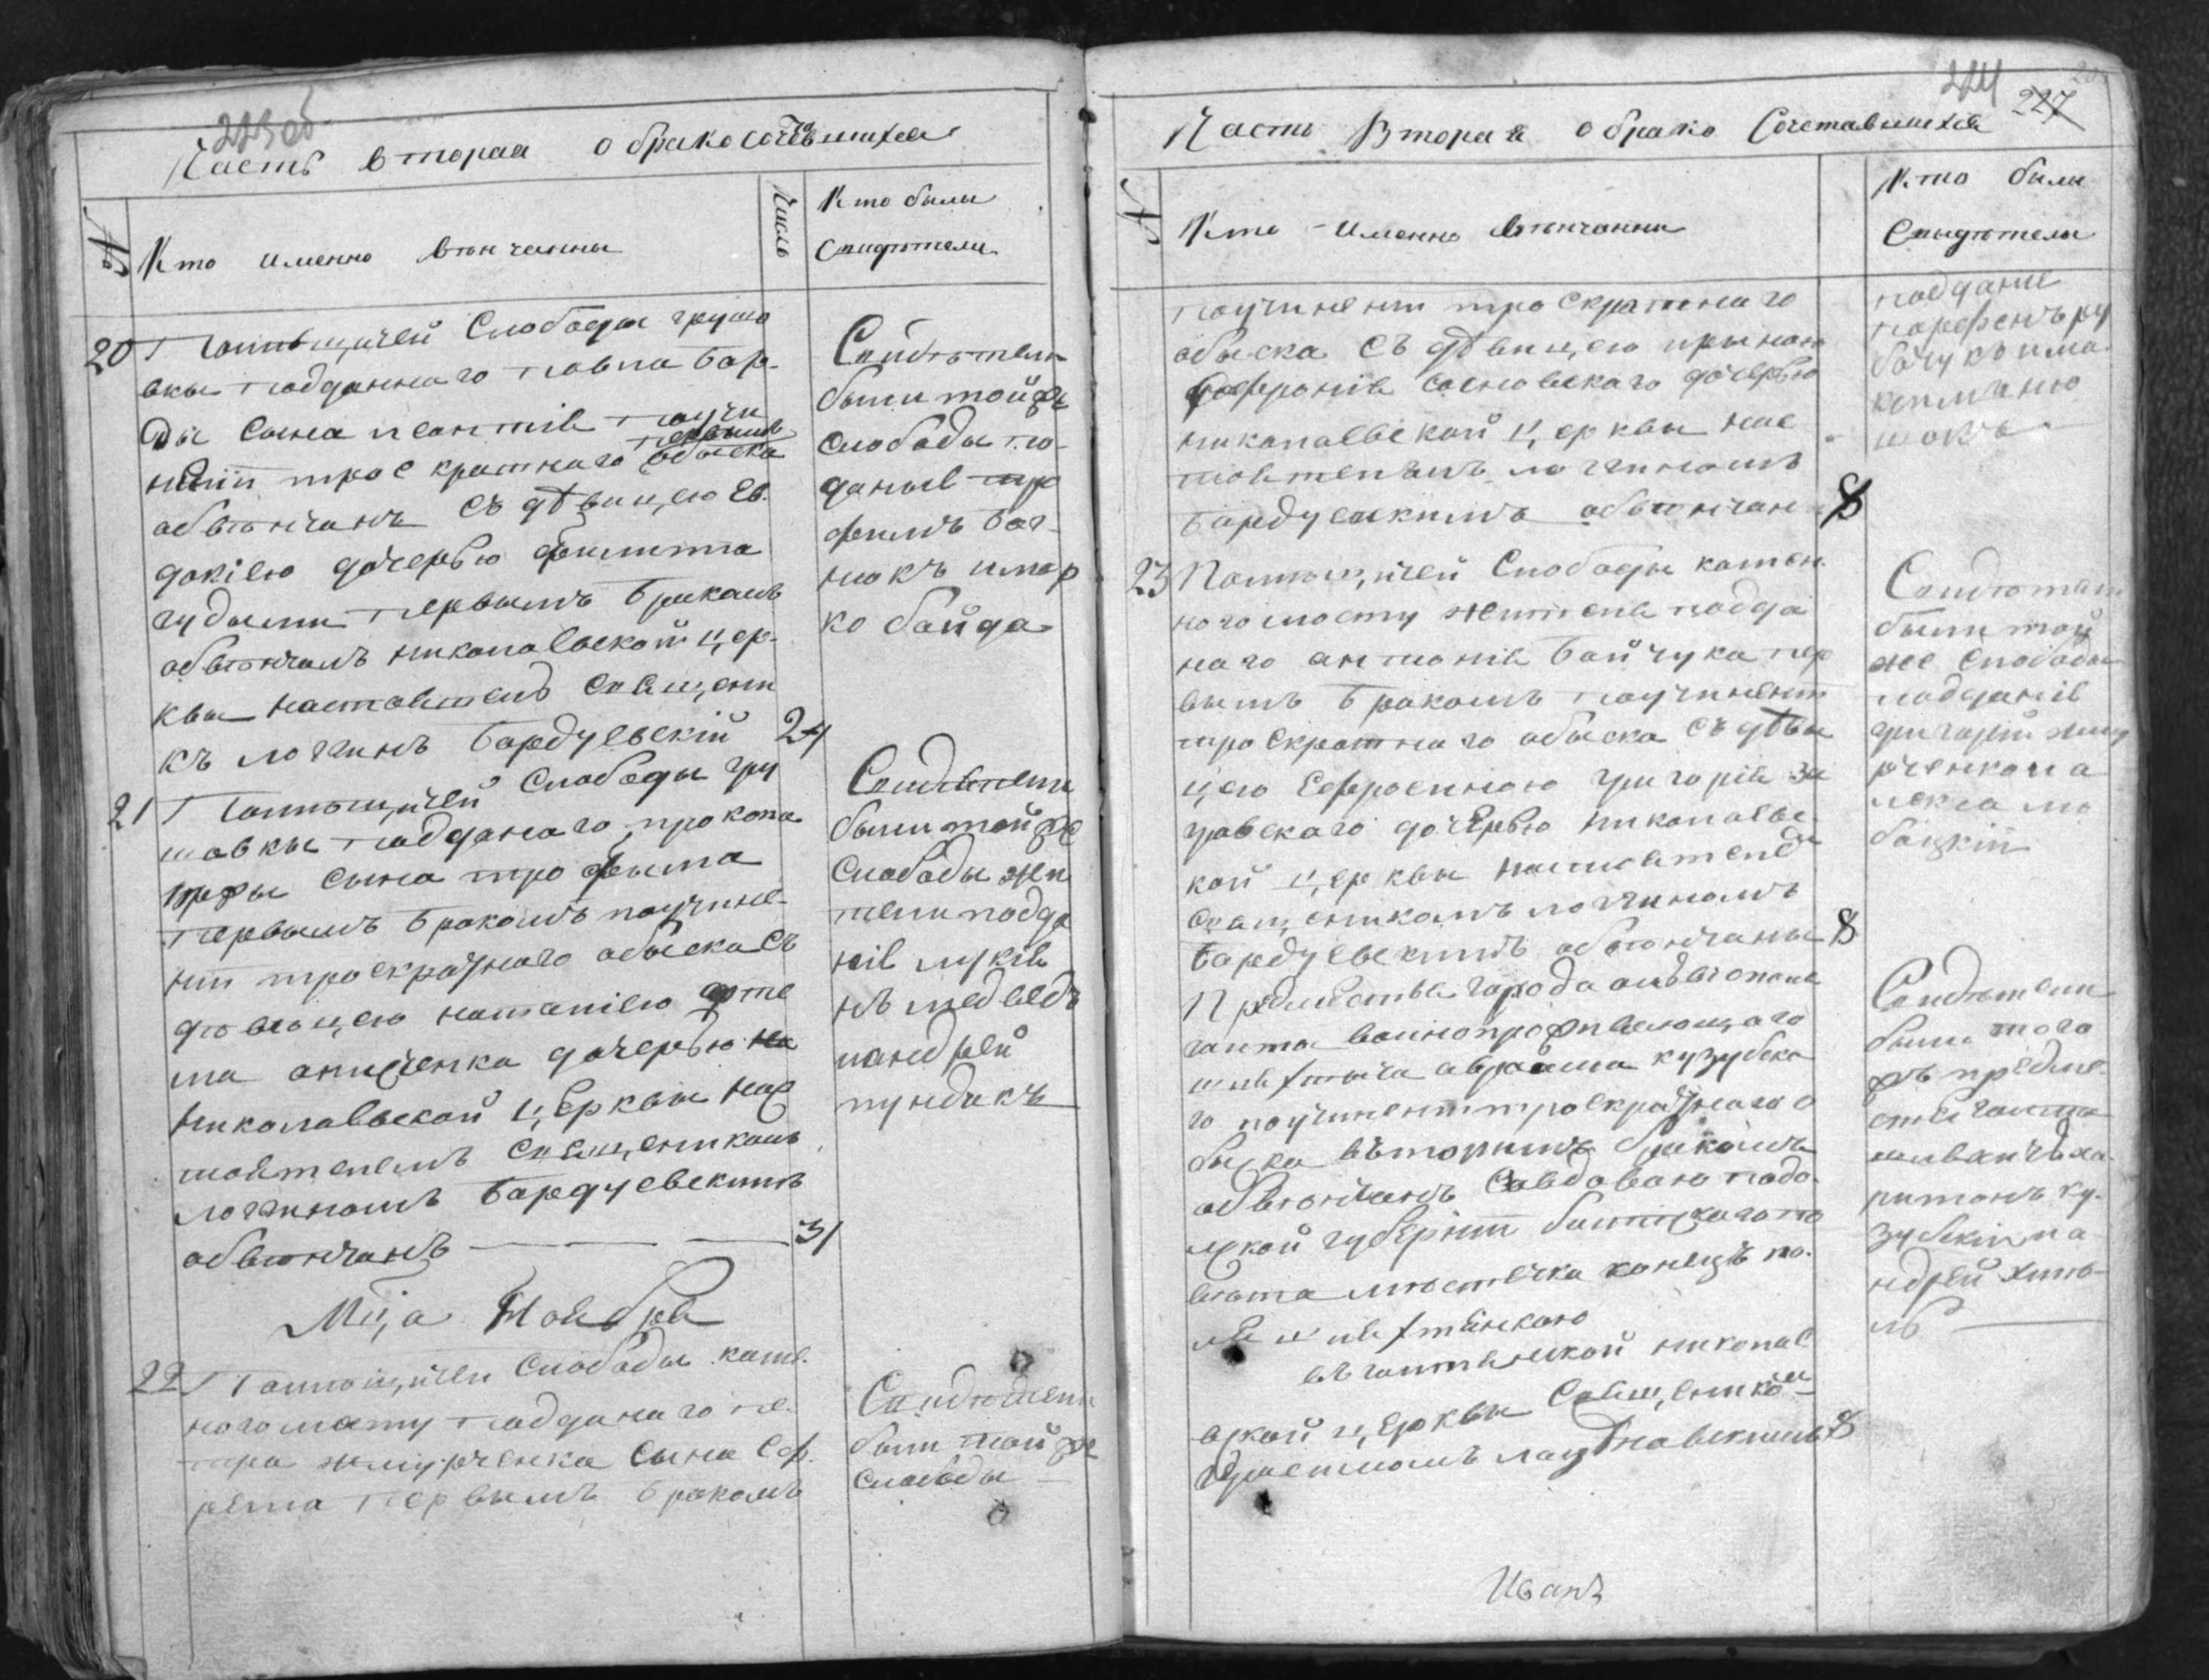 223 об
Часть вторая о бракосочтѣвшихся
№ Кто именно вѣнчанны Число Кто были
Свидѣтели
20 Помѣщичей Слободы грушо
вки подданнаго павла бар-
ды сына леонтія поучи
неніи троекратнаго обыска первым
обвѣнчанъ съ дѣвицею Ев
докіею дочерью филиппа
первымъ бракомъ
обвѣнчалъ николаевской цер-
квы настоятель священи
къ логгинъ бардуевскій 24
Свидѣтели
были тойже
слободы по
даныe тро
фимъ бог
нюкъ имар
ко байда
21 Помѣщичей Слободы гру
шовки подданаго прокопа
сына трофыма
первымъ бракомъ поучине-
ніи троекратнаго обыска съ
дѣвицею наталіею арте
ма онищенка дочерью
николаевской церквы нас
тоятелемъ священикомъ
логгиномъ бардуевскимъ
обвѣнчанъ 31
Свидѣтели
были тойже
слободы жи
тели подда
нiе лукія
нъ медведъ
иандрей
пундикъ
Мца Ноября
22 Помѣщичей слободы каме
ного мосту подданаго пе
тра жмурченка сына Еф
рема первымъ бракомъ
Свидѣтели
были тойже
слободы
224 227
Часть Вторая о брако Сочетавшихся
№ Кто именно вѣнчанни Кто были
Свыдѣтели
поучинении троекратнаго
обыска съ дѣвицею ириною
софронія сосновскаго дочерью
николаевской церквы нас
тоятелемъ логгиномъ
бардуевскимъ обвѣнчан 8
поддание
парфенъ ру
бачукъ има
23 Помѣщичей Слободы камен
ного мосту жителя подда
наго антонія байчука пер
вымъ бракомъ поучинении
троекратнаго обыска съ дѣви
цею Ефросиною григорія за
гравскаго дочерью николаевс
кой церквы настоятель
священикомъ логгиномъ
бардуевскимъ обвѣнчаны 8
Свидѣтели
были той
же слободы
подданіе
григорій жму
рченко и а
лекса ло
бацкій
Предместья города ольвиополя
голта
шляхтыча авраама кузубско
го поучинении троекратнаго о
быска вторымъ бракомъ
обвѣнчанъ Совдовою подо
лской губерніи балтскаго по
вѣта мѣстечка конецъ по
ля шляхтянкою
въ голтянской николае
вской церквы священико
8
Свидѣтели
были того
жъ предме
стья голта
ха
ритонъ ку
зубскій и а
ндрей
Иванъ